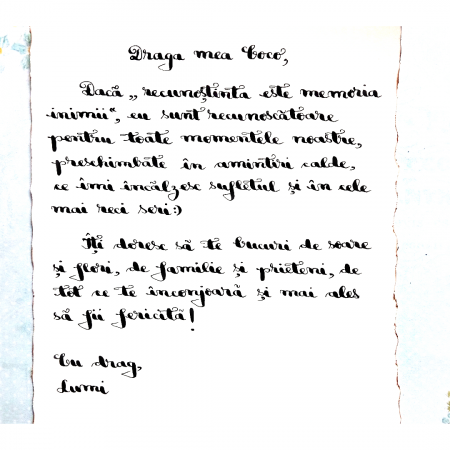 Draga mea Coco,
Dacă „recunoștința este memoria
inimii“, eu sunt recunoscătoare
pentru toate momentele noastre,
preschimbate în amintiri calde,
ce îmi încălzesc sufletul și în cele
mai reci seri:)
Îți doresc să te bucuri de soare
și flori, de familie și prieteni, de
tot ce te înconjoară și mai ales
să fii fericită!
Cu drag,
Lumi